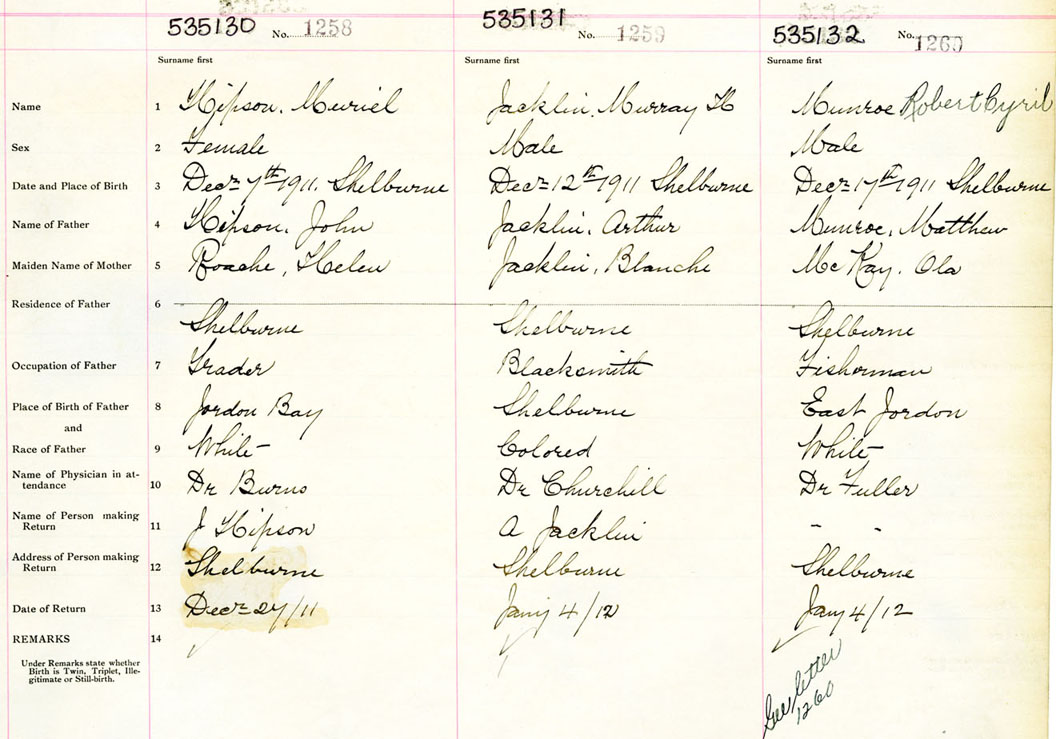 535130 No. 1258 535131 No. 1259 535132 No. 1260
Surname first Surname first Surname first
Name 1 Hipson, Muriel Jacklin, Murray H Munroe Robert Cyril
Sex 2 Female Male Male
Date and Place of Birth 3 Decr 7th 1911. Shelburne Decr 12th 1911 Shelburne Decr 17th 1911 Shelburne
Name of Father 4 Hipson, John Jacklin, Arthur Munroe, Matthew
Maiden Name of Mother 5 Roache, Helen Jacklin, Blanche McKay, Ola
Residence of Father 6
Shelburne Shelburne Shelburne
Occupation of Father 7 Trader Blacksmith Fisherman
Place of Birth of Father 8 Jordon Bay Shelburne East Jordon
and
Race of Father 9 White Colored White
Name of Physician in at-
tendance 10 Dr Burns Dr Churchill Dr Fuller
Name of Person making
Return 11 J Hipson A Jacklin " "
Address of Person making
Return 12 Shelburne Shelburne Shelburne
Date of Return 13 Decr 27/11 Jany 4/12 Jany 4/12
REMARKS 14
Under Remarks state whether
Birth is Twin, Triplet, Ille-
gitimate or Still-birth.
See letter
1260